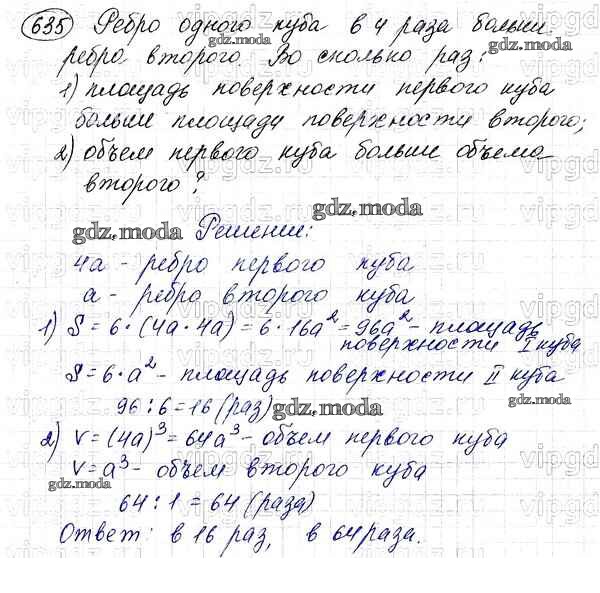 635 Ребро одного куба в 4 раза больше
ребра второго. Во сколько раз:
1) площадь поверхности первого куба
больше площади поверхности второго;
2) объем первого куба больше объема
второго?
gdz.moda Решение:
4a - ребро первого куба
a - ребро второго куба
1) S = 6 · (4a · 4a) = 6 · 16a² = 96a² - площадь
поверхности I куба
S = 6 · a² - площадь поверхности II куба
96 : 6 = 16 (раз) gdz.moda
2) V = (4a)³ = 64a³ - объем первого куба
V = a³ - объем второго куба
64 : 1 = 64 (раза)
Ответ: в 16 раз, в 64 раза.